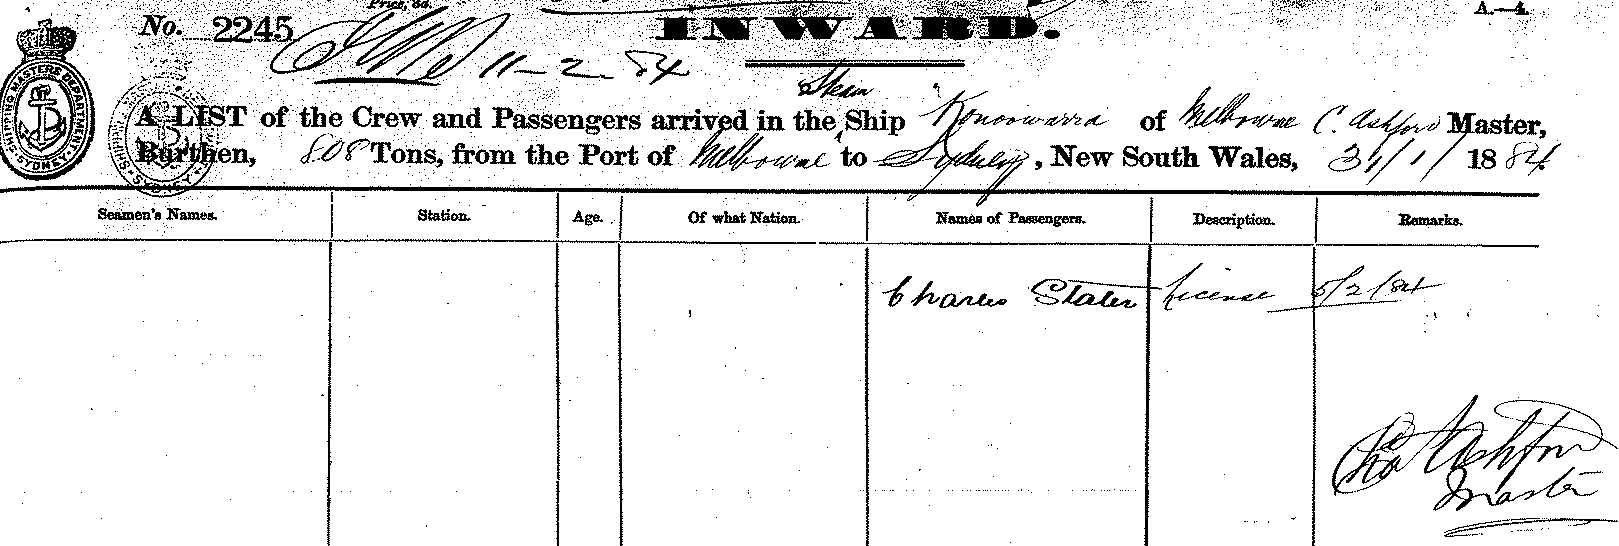 Price, 6d.
A.—4.
No. 2245
INWARD.
11-2-84
Steam
A LIST of the Crew and Passengers arrived in the Ship Konoowarra of Melbourne C. Ashford Master,
Burthen, 808 Tons, from the Port of Melbourne to Sydney, New South Wales, 31/1/ 1884
SHIPPING MASTERS DEPARTMENT
SYDNEY
Seamen's Names. Station. Age. Of what Nation. Names of Passengers. Description. Remarks.
Charles Slater License 5/2/84
Chas Ashford
Master